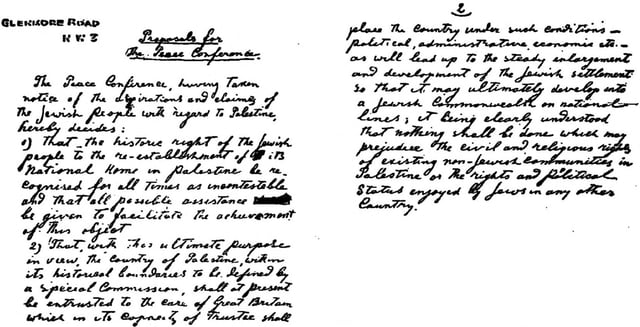 GLENMORE ROAD
N W 3
Proposals for
The Peace Conference.
The Peace Conference, having taken
notice of the aspirations and claims of
the Jewish People with regard to Palestine,
hereby decides:
1) That the historic right of the Jewish
people to the re-establishment of its
National Home in Palestine be re-
cognised for all times as incontestable
and that all possible assistance
be given to facilitate the achievement
of this object
2) That, with this ultimate purpose
in view, the country of Palestine, within
its historical boundaries to be defined by
a special Commission, shall at present
be entrusted to the care of Great Britain
which in its capacity of Trustee shall
2
place the Country under such conditions —
political, administrative, economic etc. —
as will lead up to the steady enlargement
and development of the Jewish settlement
so that it may ultimately develop into
a Jewish Commonwealth on national
lines; it being clearly understood
that nothing shall be done which may
prejudice the civil and religious rights
of existing non-Jewish communities in
Palestine or the rights and political
Status enjoyed by Jews in any other
Country.